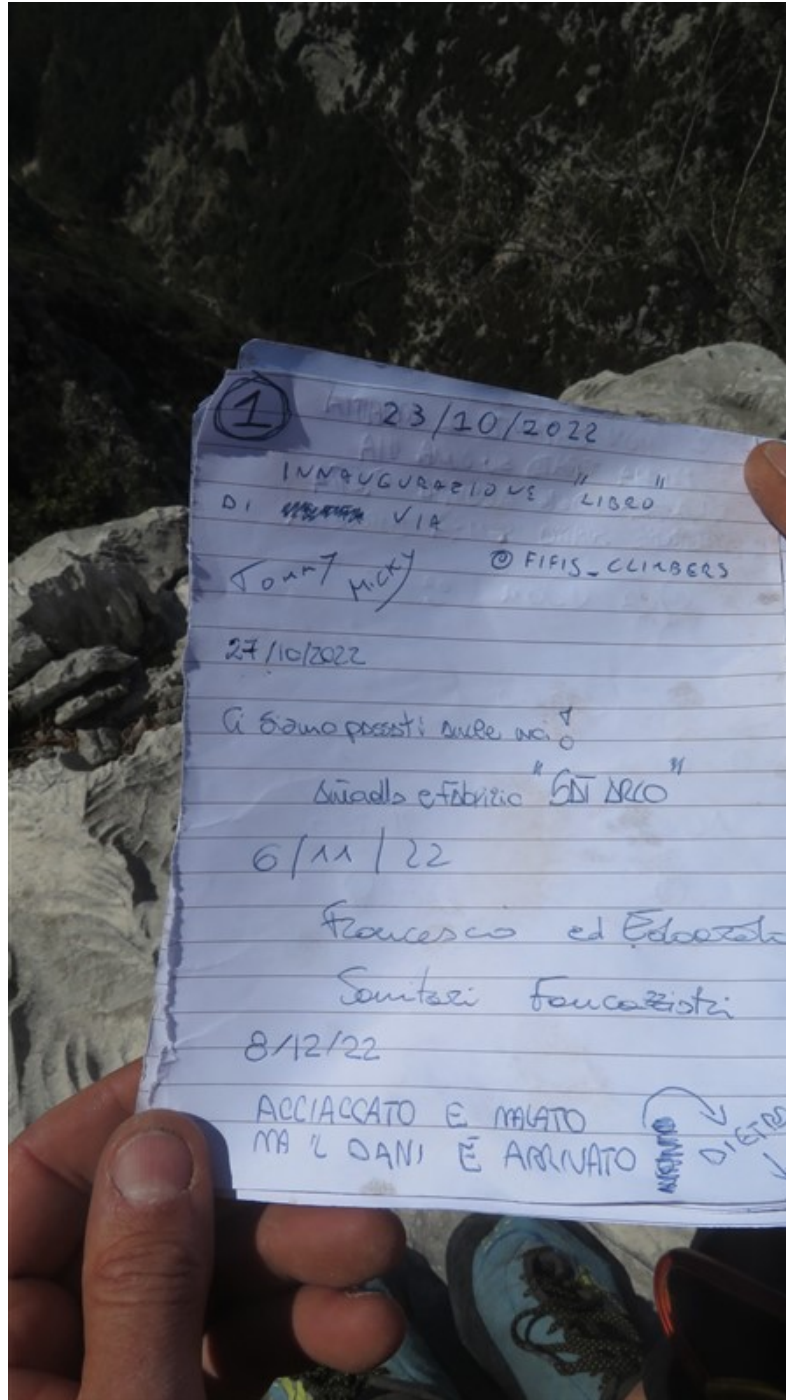 1
23/10/2022
INNAUGURAZIONE "LIBRO"
DI VIA
Tommy Micky @FIFIS_CLIMBERS
27/10/2022
Ci siamo passati sulle
e Fabrizio "SAT ARCO"
6/11/22
Francesco ed Edoardo
Sanitari Fancazzisti
8/12/22
ACCIACCATO E MALATO
MA IL DANI É ARRIVATO
DIETRO